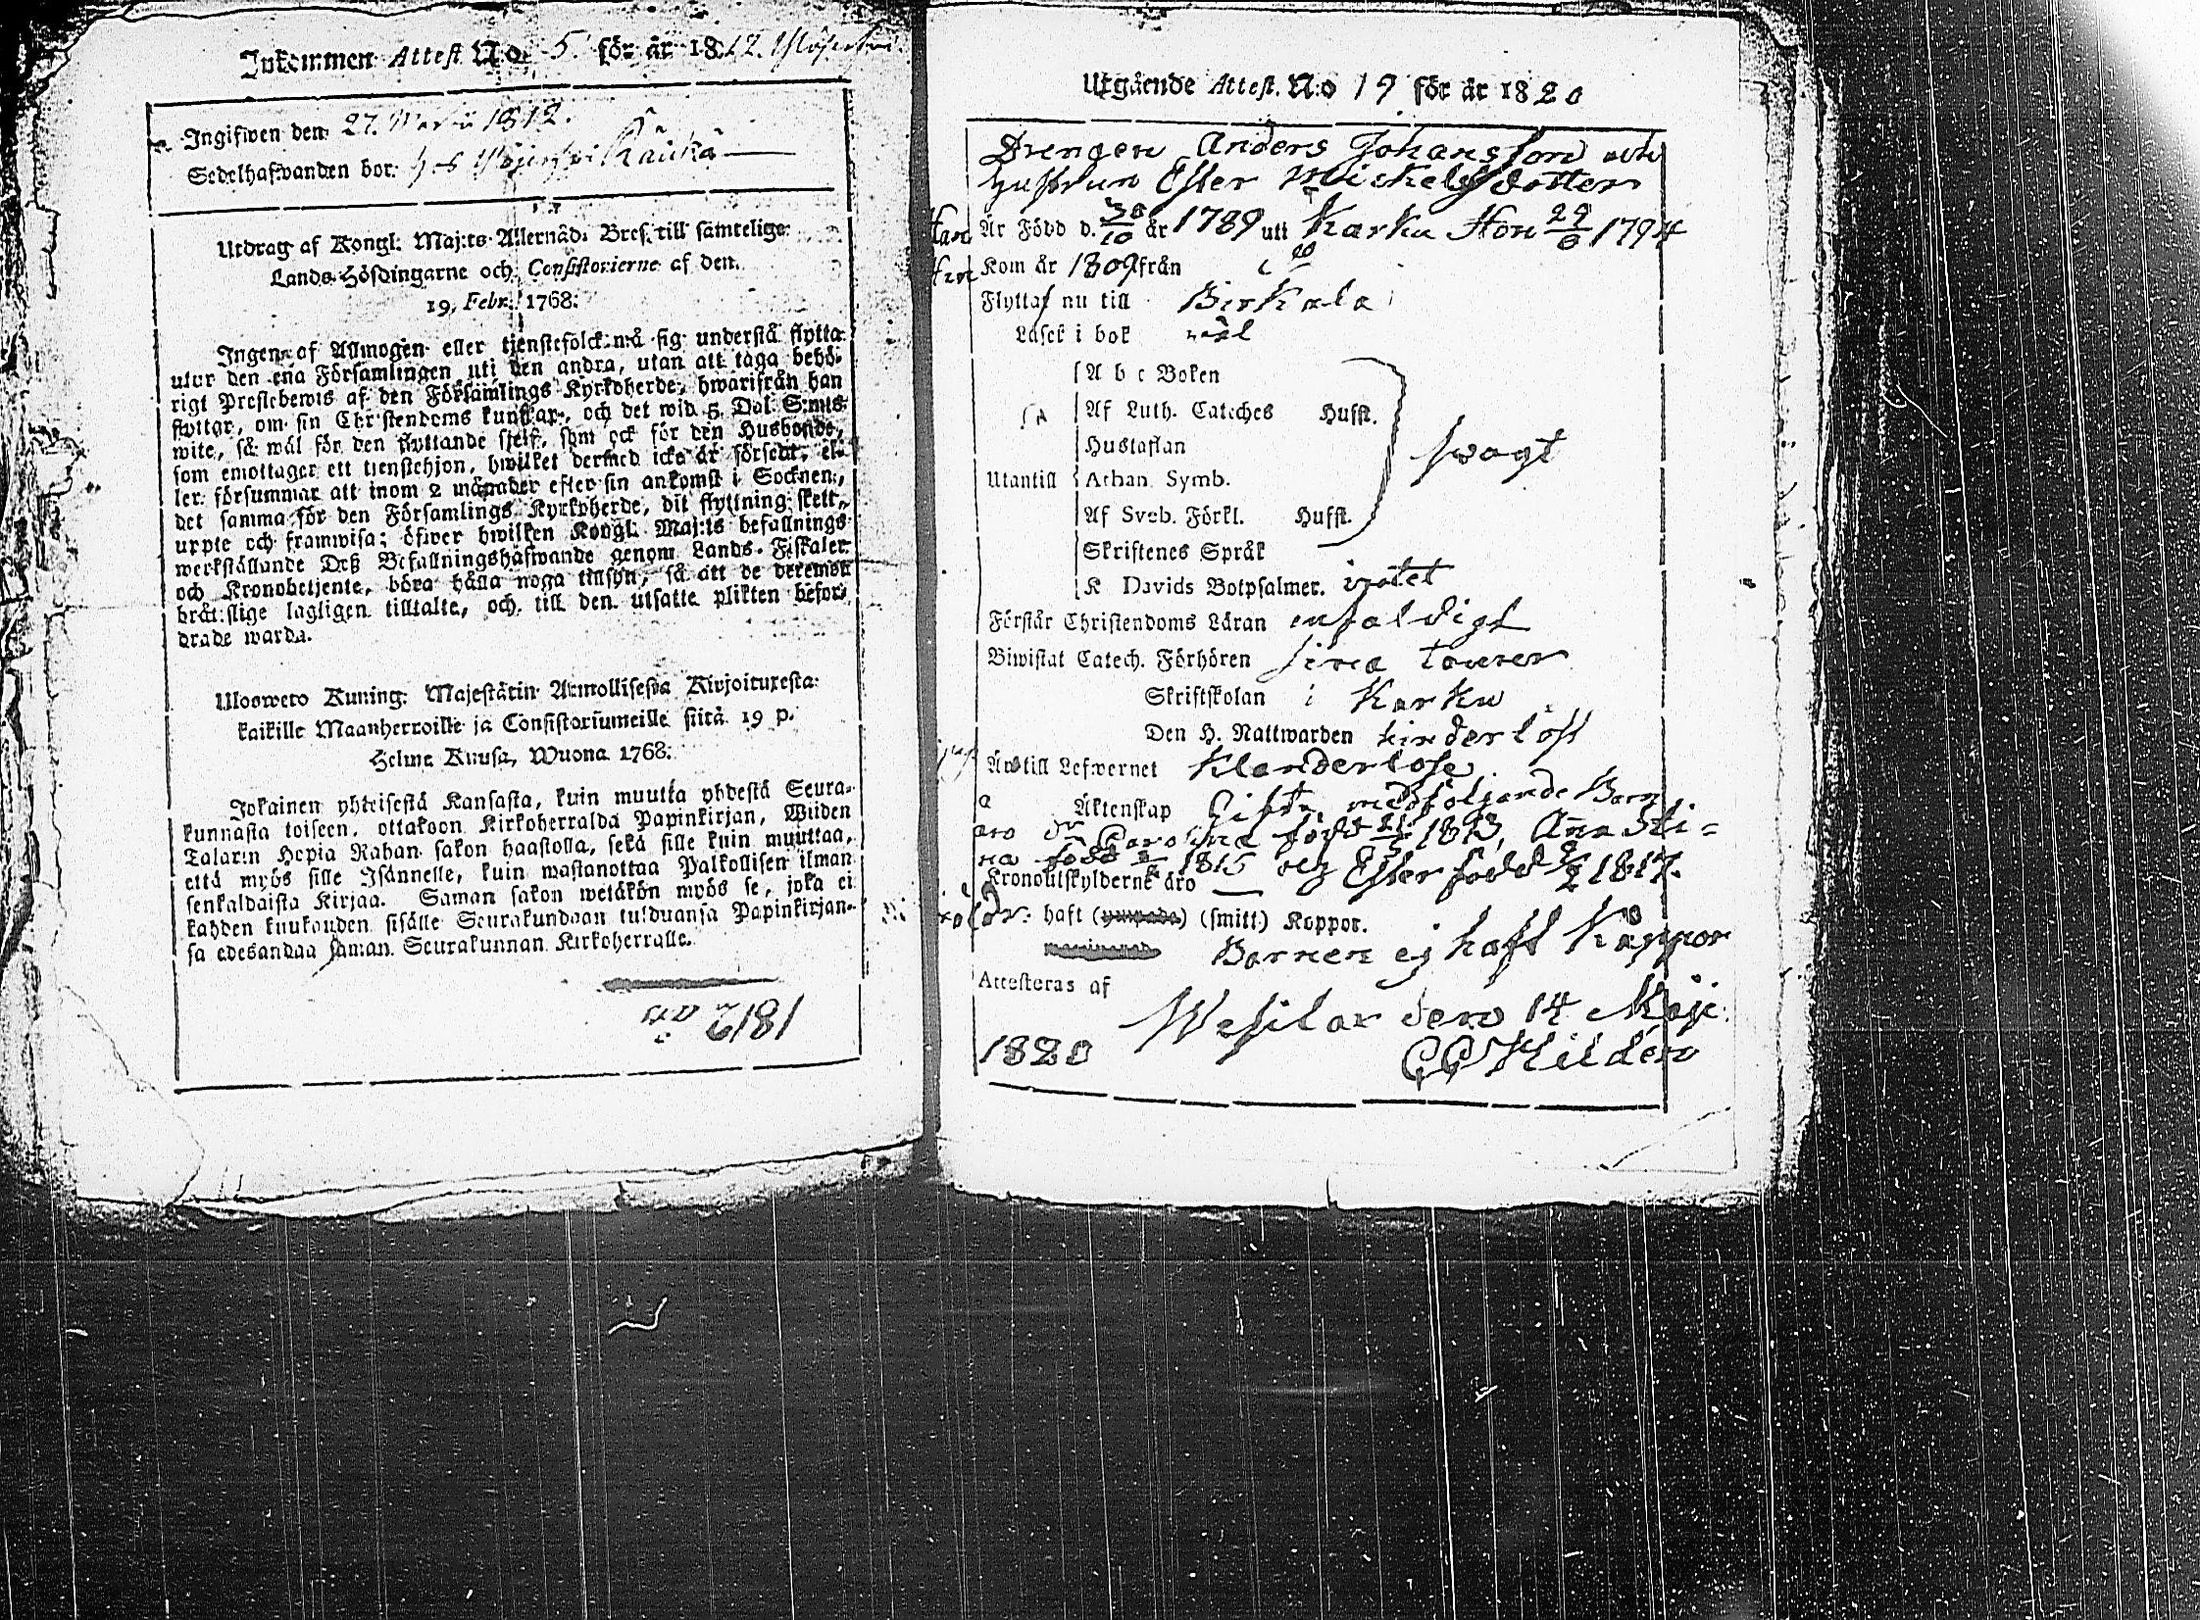 Inkommen Attest No. 5 för år 1812.
Ingifwen den 27. Martii 1812.
Sedelhafwanden bor
Utdrag af Kongl. Maj:ts Allernåd. Bref till samtelige
Lands-Höfdingarne och Consistorierne af den
19. Febr. 1768.
Ingen af Allmogen eller tjenstefolck må sig understå flytta
utur den ena Församlingen uti den andra, utan att taga behö-
rigt Prestebewis af den Församlings Kyrkoherde, hwarifrån han
flyttar, om sin Christendoms kunskap, och det wid 5. Dal. S:mts
wite, så wäl för den flyttande sjelf, som ock för den Husbonde,
som emottager ett tjenstehjon, hwilket dermed icke är försedt, el-
ler försummar att inom 2 månader efter sin ankomst i Socknen,
det samma för den Församlings Kyrkoherde, dit flyttning skett,
uppte och framwisa; öfwer hwilken Kongl. Maj:ts befallnings
werkställande Deß Befallningshafwande genom Lands-Fiskaler
och Kronobetjente, böra hålla noga tillsyn, så att de deremot
brått:slige lagligen tilltalte, och till den utsatte plikten befor-
drade warda.
Ulosweto Kuning. Majestätin Armollisesta Kirjoituxesta
kaikille Maanherroille ja Consistoriumeille siitä 19 p.
Helme Kuusa, Wuona 1768.
Jokainen yhteisestä Kansasta, kuin muutta yhdestä Seura-
kunnasta toiseen, ottakoon Kirkoherralda Papinkirjan, Wiiden
Talarin Hopia Rahan sakon haastolla, sekä sille kuin muuttaa,
että myös sille Isännelle, kuin wastanottaa Palkollisen ilman
senkaldaista Kirjaa. Saman sakon wetäkön myös se, joka ei
kahden kuukauden sisälle Seurakundaan tulduansa Papinkirjan-
sa edesandaa saman Seurakunnan Kirkoherralle.
1812
Utgående Attest. N:o 19 för år 1820
Drengen Anders Johansson och
hustrun Ester Mickelsdotter
Han Är Född d. 30/10 år 1789 uti Karku Hon 29/6 1794
Kom år 1809 från
Flyttas nu till Birkala
Läser i bok wäl
A b c Boken
Af Luth. Cateches Hufst.
Hustaflan
Utantill Athan. Symb. swagt
Af Sveb. Förkl. Hufst.
Skriftenes Språk
K Davids Botpsalmer. intet
Förstår Christendoms Läran enfaldigt
Biwistat Catech. Förhören sina tourer
Skriftskolan i Karku
Den H. Nattwarden hinderlöst
Är till Lefwernet Klanderlöse
Äktenskap Gifte, medföljande Barn
äro Carolina född 1813, Anna Sti=
na född 1815 och Ester född 1817.
Kronoutskylderne äro —
haft (smitt.) Koppor.
Barnen ej haft Kåppor
Attesteras af
Wesilax den 14 Maji
1820 Hildén